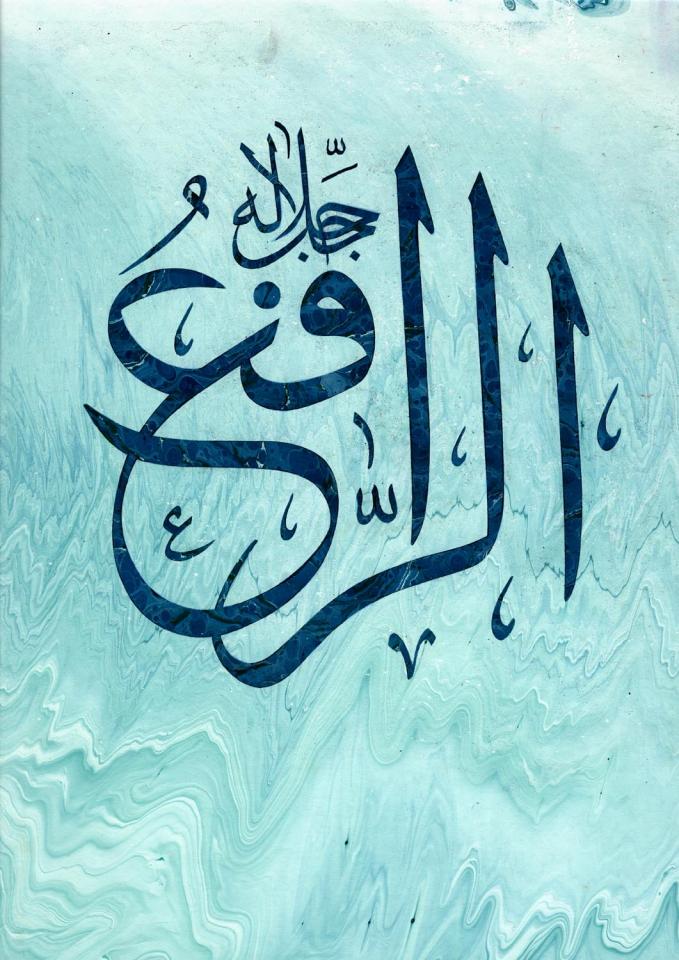 جل جلاله
الرافع